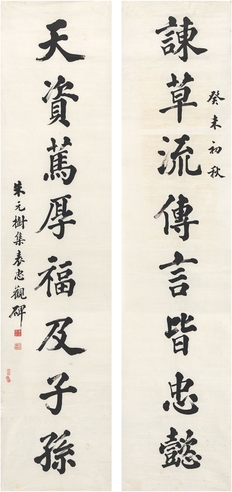 癸未初秋
諫草流傳言皆忠懿
天資萬厚福及子孫
朱元樹集表忠觀碑